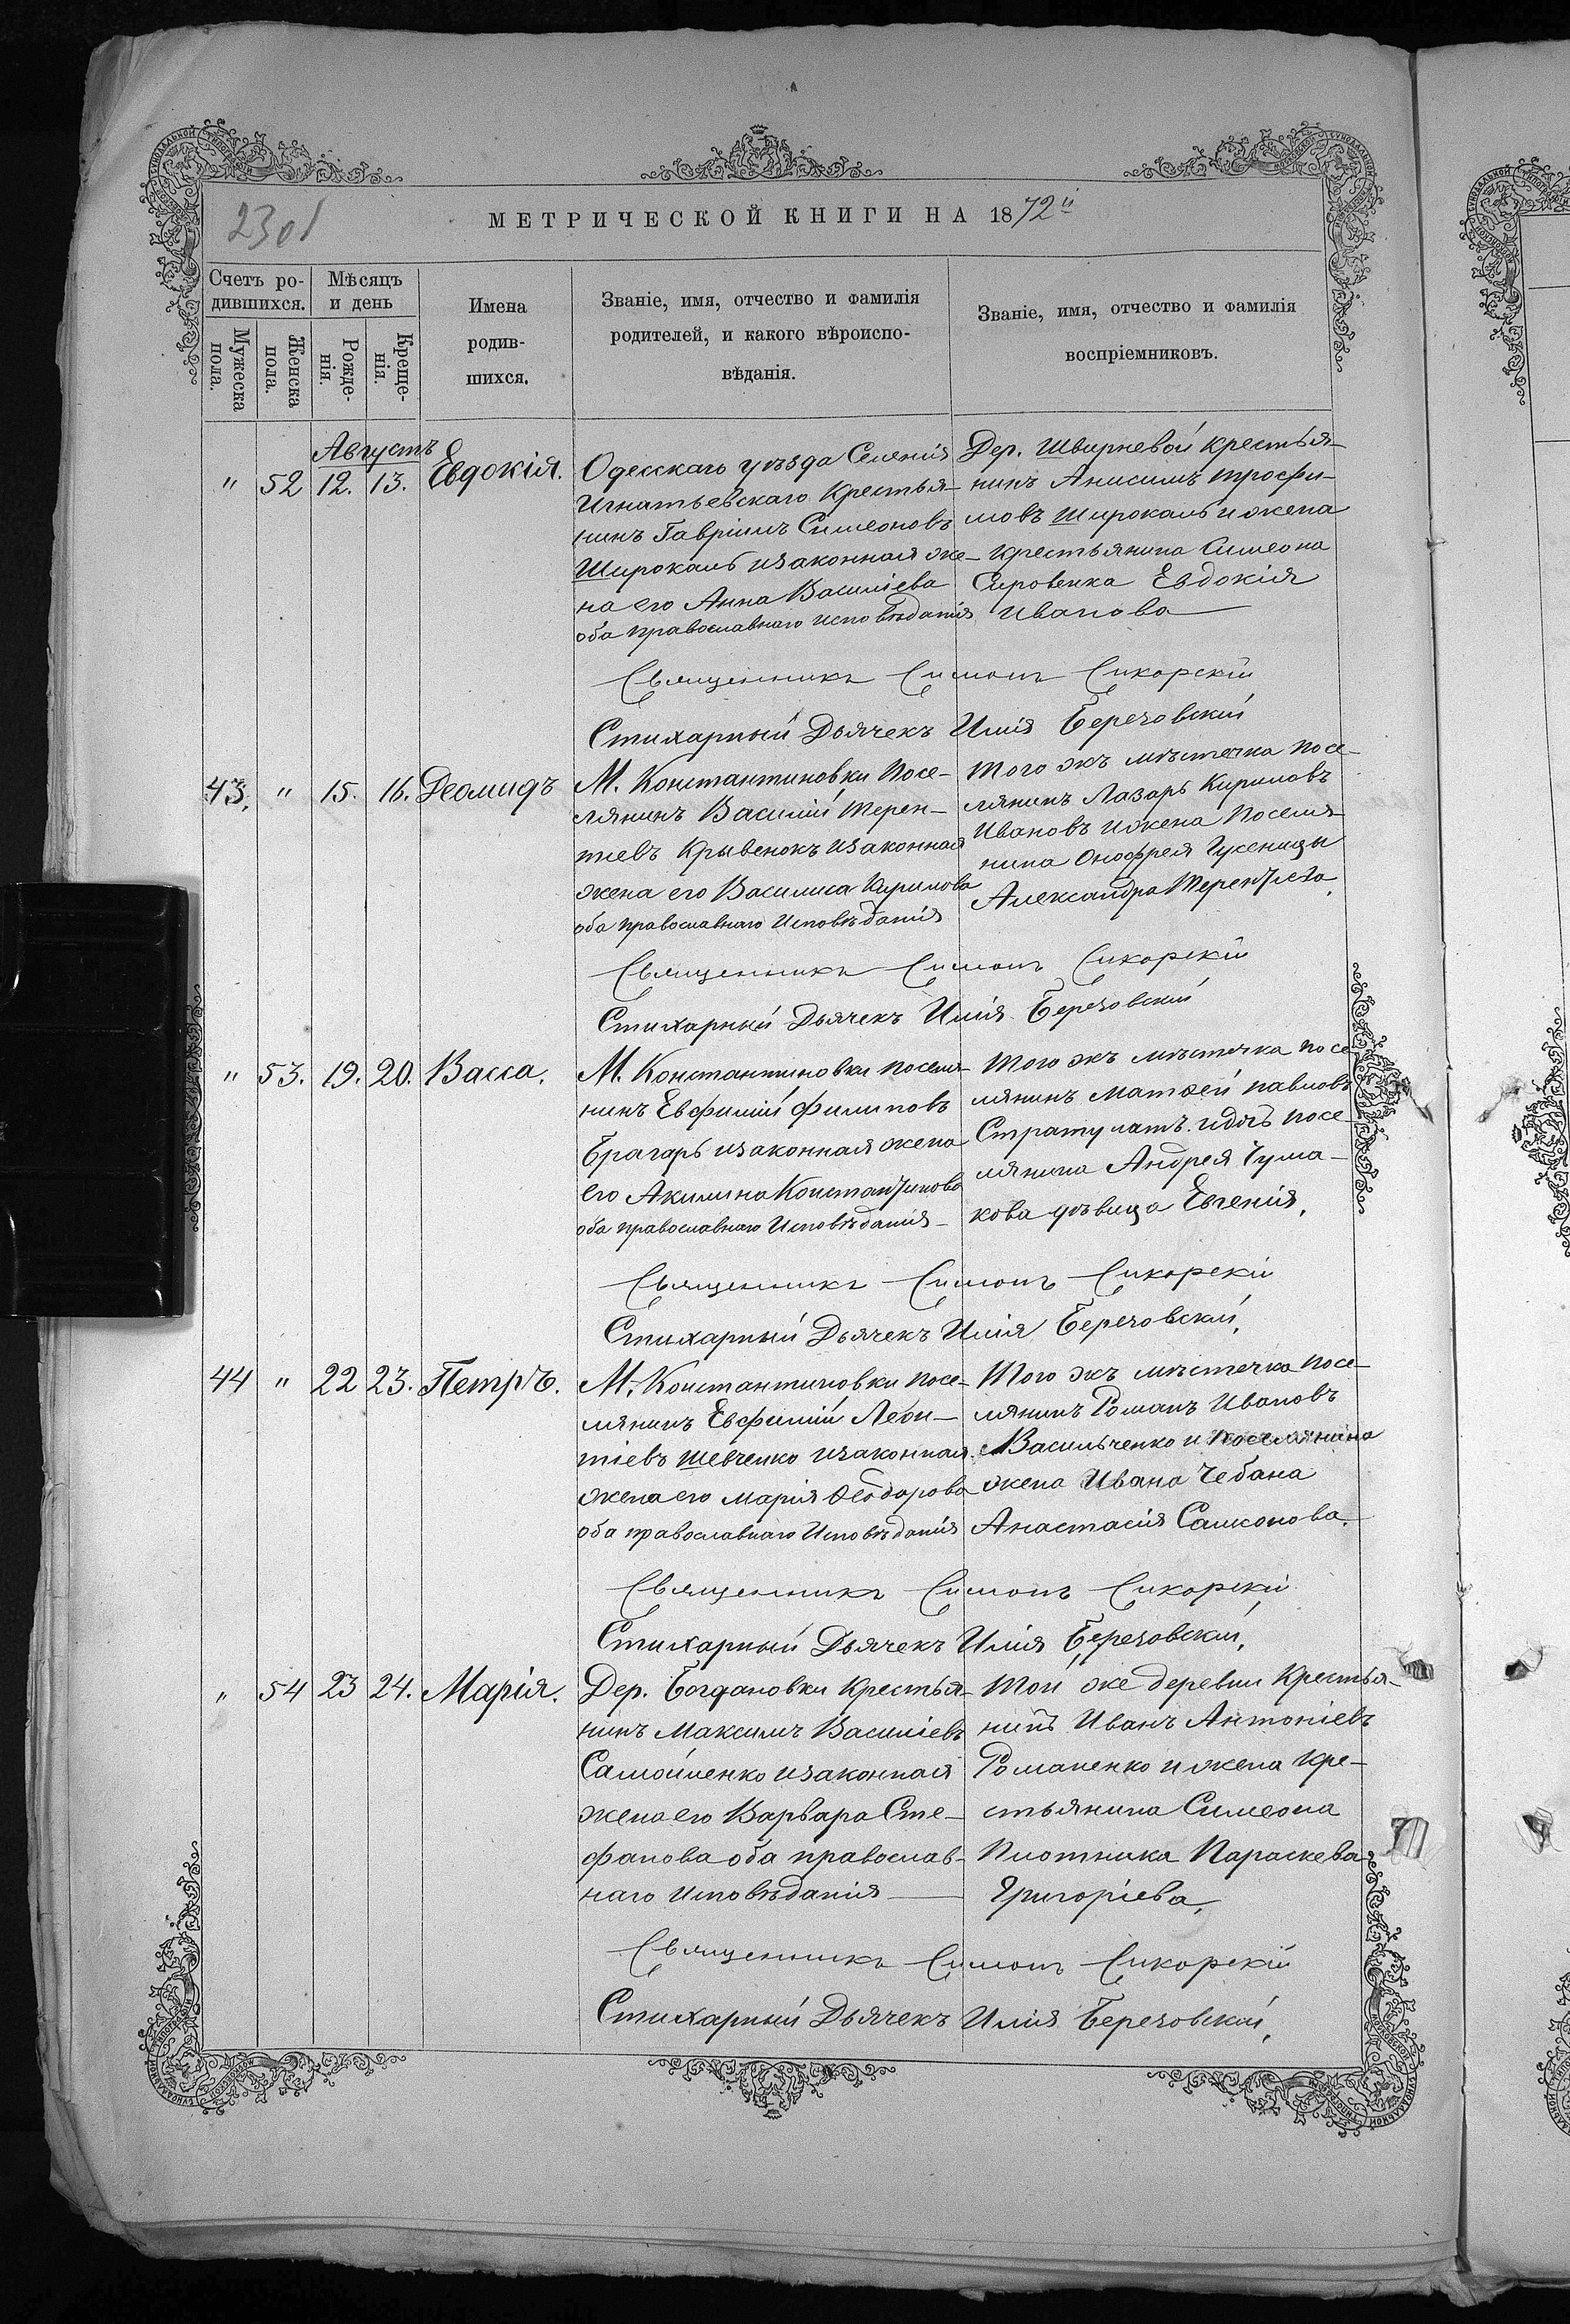 23об
МЕТРИЧЕСКОЙ КНИГИ НА 1872й
Счетъ ро-
дившихся.
Мѣсяцъ
и день
Мужеска
пола.
Женска
пола.
Рожде-
нія.
Креще-
нія.
Имена
родив-
шихся.
Званіе, имя, отчество и фамилія
родителей, и какого вѣроиспо-
вѣданія.
Званіе, имя, отчество и фамилія
воспріемниковъ.
Августъ
" 52 12. 13. Евдокія.
Одесскаго уѣзда Селенія
Игнатьевскаго Крестья-
нинъ Гавріилъ Симеоновъ
Широкаль изаконная же-
на его Анна Василіева
оба православнаго исповѣданія
Дер. Швирневой крестья-
нинъ Анисимъ трофи-
мовъ Широкаль и жена
крестьянина Симеона
Сировенка Евдокія
Иванова
Священникъ Симонъ Сикорскій
Стихарный Дьячекъ Илія Березовскій
43. " 15. 16. Деомидъ
М. Константиновки Посе-
лянинъ Василій Терен-
тіевъ Крывенокъ изаконная
жена его Василиса Кирилова
оба православнаго Исповѣданія
Того жъ мѣстечка посе-
лянинъ Лазарь Кириловъ
Ивановъ и жена Поселя-
нина Онофрея Гусеницы
Александра Терентіева.
Священникъ Симонъ Сикорскій
Стихарный Дьячекъ Илія Березовскій
" 53. 19. 20. Васса.
М. Константиновки поселя-
нинъ Евфимій филиповъ
Брагарь изаконная жена
его Акилина Константинова
оба православнаго Исповѣданія
Того жъ мѣстечка посе-
лянинъ Матѳей павловъ
Стратулатъ. идочь посе-
лянина Андрея Чума-
кова дѣвица Евгенія.
Священникъ Симонъ Сикорскій
Стихарный Дьячекъ Илія Березовскій.
44 " 22 23. Петръ.
М. Константиновки посе-
лянинъ Евфимій Леон-
тіевъ Шевченко изаконная
жена его Марія Ѳеодорова
оба православнаго Исповѣданія
Того жъ мѣстечка посе-
лянинъ Романъ Ивановъ
Васильченко и поселянина
жена Ивана Чебана
Анастасія Самсонова.
Священникъ Симонъ Сикорскій
Стихарный Дьячекъ Илія Березовскій.
" 54 23 24. Марія.
Дер. Богдановки Крестья-
нинъ Максимъ Василіевъ
Самойленко изаконная
жена его Варвара Сте-
фанова оба православ-
наго Исповѣданія
Той же деревни Крестья-
нинъ Иванъ Антоніевъ
Романенко и жена кре-
стьянина Симеона
Плотника Параскева
Григоріева.
Священникъ Симонъ Сикорскій
Стихарный Дьячекъ Илія Березовскій.